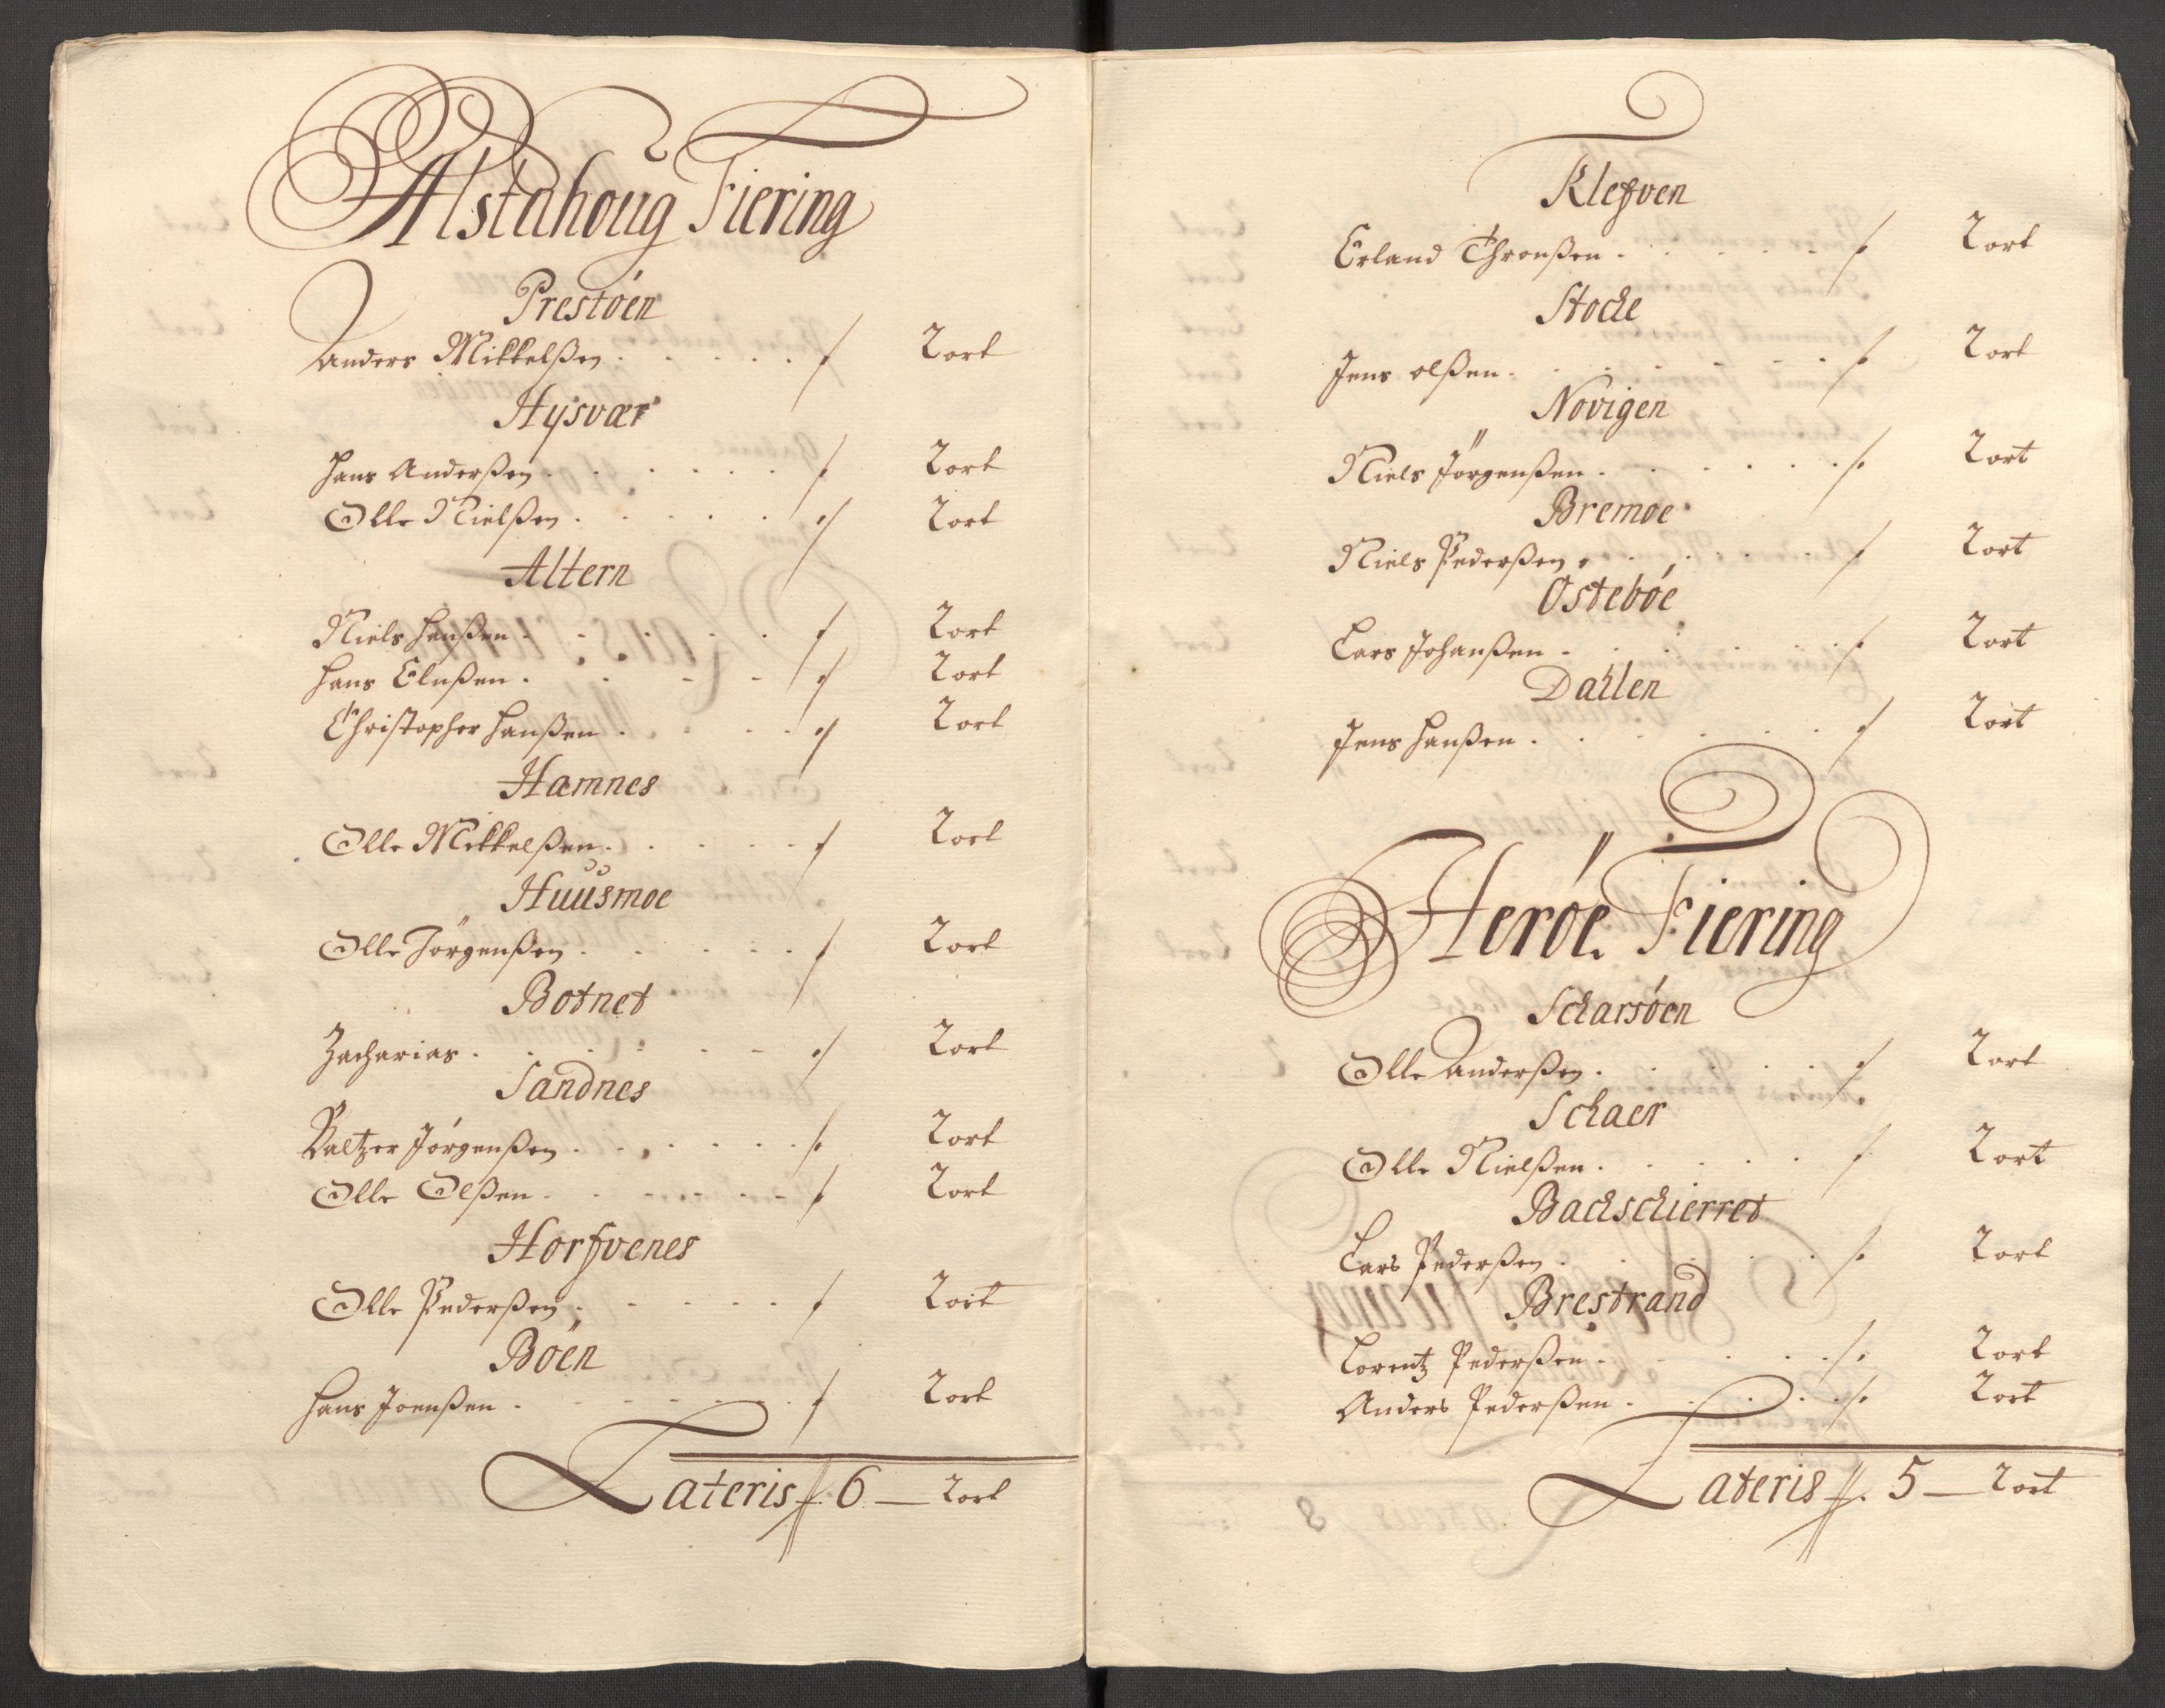 Alstahoug Fiering
Prestöen
Anders Mikkelßen . . . . . / 2 ort
Hysvær
Hans Anderßen . . . . . . / 2 ort
Olle Nielßen . . . . . / 2 ort
Altern
Niels Hanßen . . . . . / 2 ort
Hans Elußen . . . . / 2 ort
Christopher Hanßen . . . . / 2 ort
Hamnes
Olle Mikkelßen . . . . . / 2 ort
Huusmoe
Olle Jörgenßen . . . . . / 2 ort
Botnet
Zacharias . . . . . . / 2 ort
Sandnes
Baltzer Jörgenßen . . . . . . / 2 ort
Olle Olßen . . . . . . / 2 ort
Horfvenes
Olle Pederßen . . . . . / 2 ort
Böen
Hans Joenßen . . . . . . / 2 ort
Lateris 6 — 2 ort
Klefven
Erland Thronßen . . . . . / 2 ort
Stocke
Jens olßen . . . . . . / 2 ort
Novigen
Niels Jörgenßen . . . . . / 2 ort
Bremoe
Niels Pederßen . . . . . . / 2 ort
Osteböe
Lars Johanßen . . . . . . / 2 ort
Dahlen
Jens Hanßen . . . . . . / 2 ort
Heröe Fiering
Sckarsöen
Olle Anderßen . . . . . / 2 ort
Sckaer
Olle Nielßen . . . . . / 2 ort
Backsckierret
Lars Pederßen . . . . . / 2 ort
Brestrand
Lorentz Pederßen . . . . . / 2 ort
Anders Pederßen . . . . . / 2 ort
Lateris 5 — 2 ort